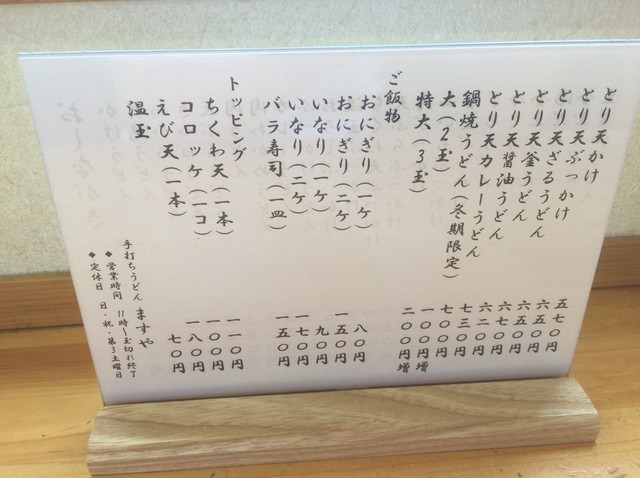 とり天かけ 五七〇円
とり天ぶっかけ 六五〇円
とり天ざるうどん 六五〇円
とり天釜うどん 六七〇円
とり天醤油うどん 六二〇円
とり天カレーうどん 七三〇円
鍋焼うどん(冬期限定) 七〇〇円
大(2玉) 一〇〇円増
特大(3玉) 二〇〇円増
ご飯物
おにぎり(一ケ) 八〇円
おにぎり(二ケ) 一五〇円
いなり(一ケ) 九〇円
いなり(二ケ) 一七〇円
バラ寿司(一皿) 一五〇円
トッピング
ちくわ天(一本) 一一〇円
コロッケ(一コ) 一〇〇円
えび天(一本) 一八〇円
温玉 七〇円
手打ちうどん ますや
◆営業時間 11時〜玉切れ終了
◆定休日 日・祝・第3土曜日